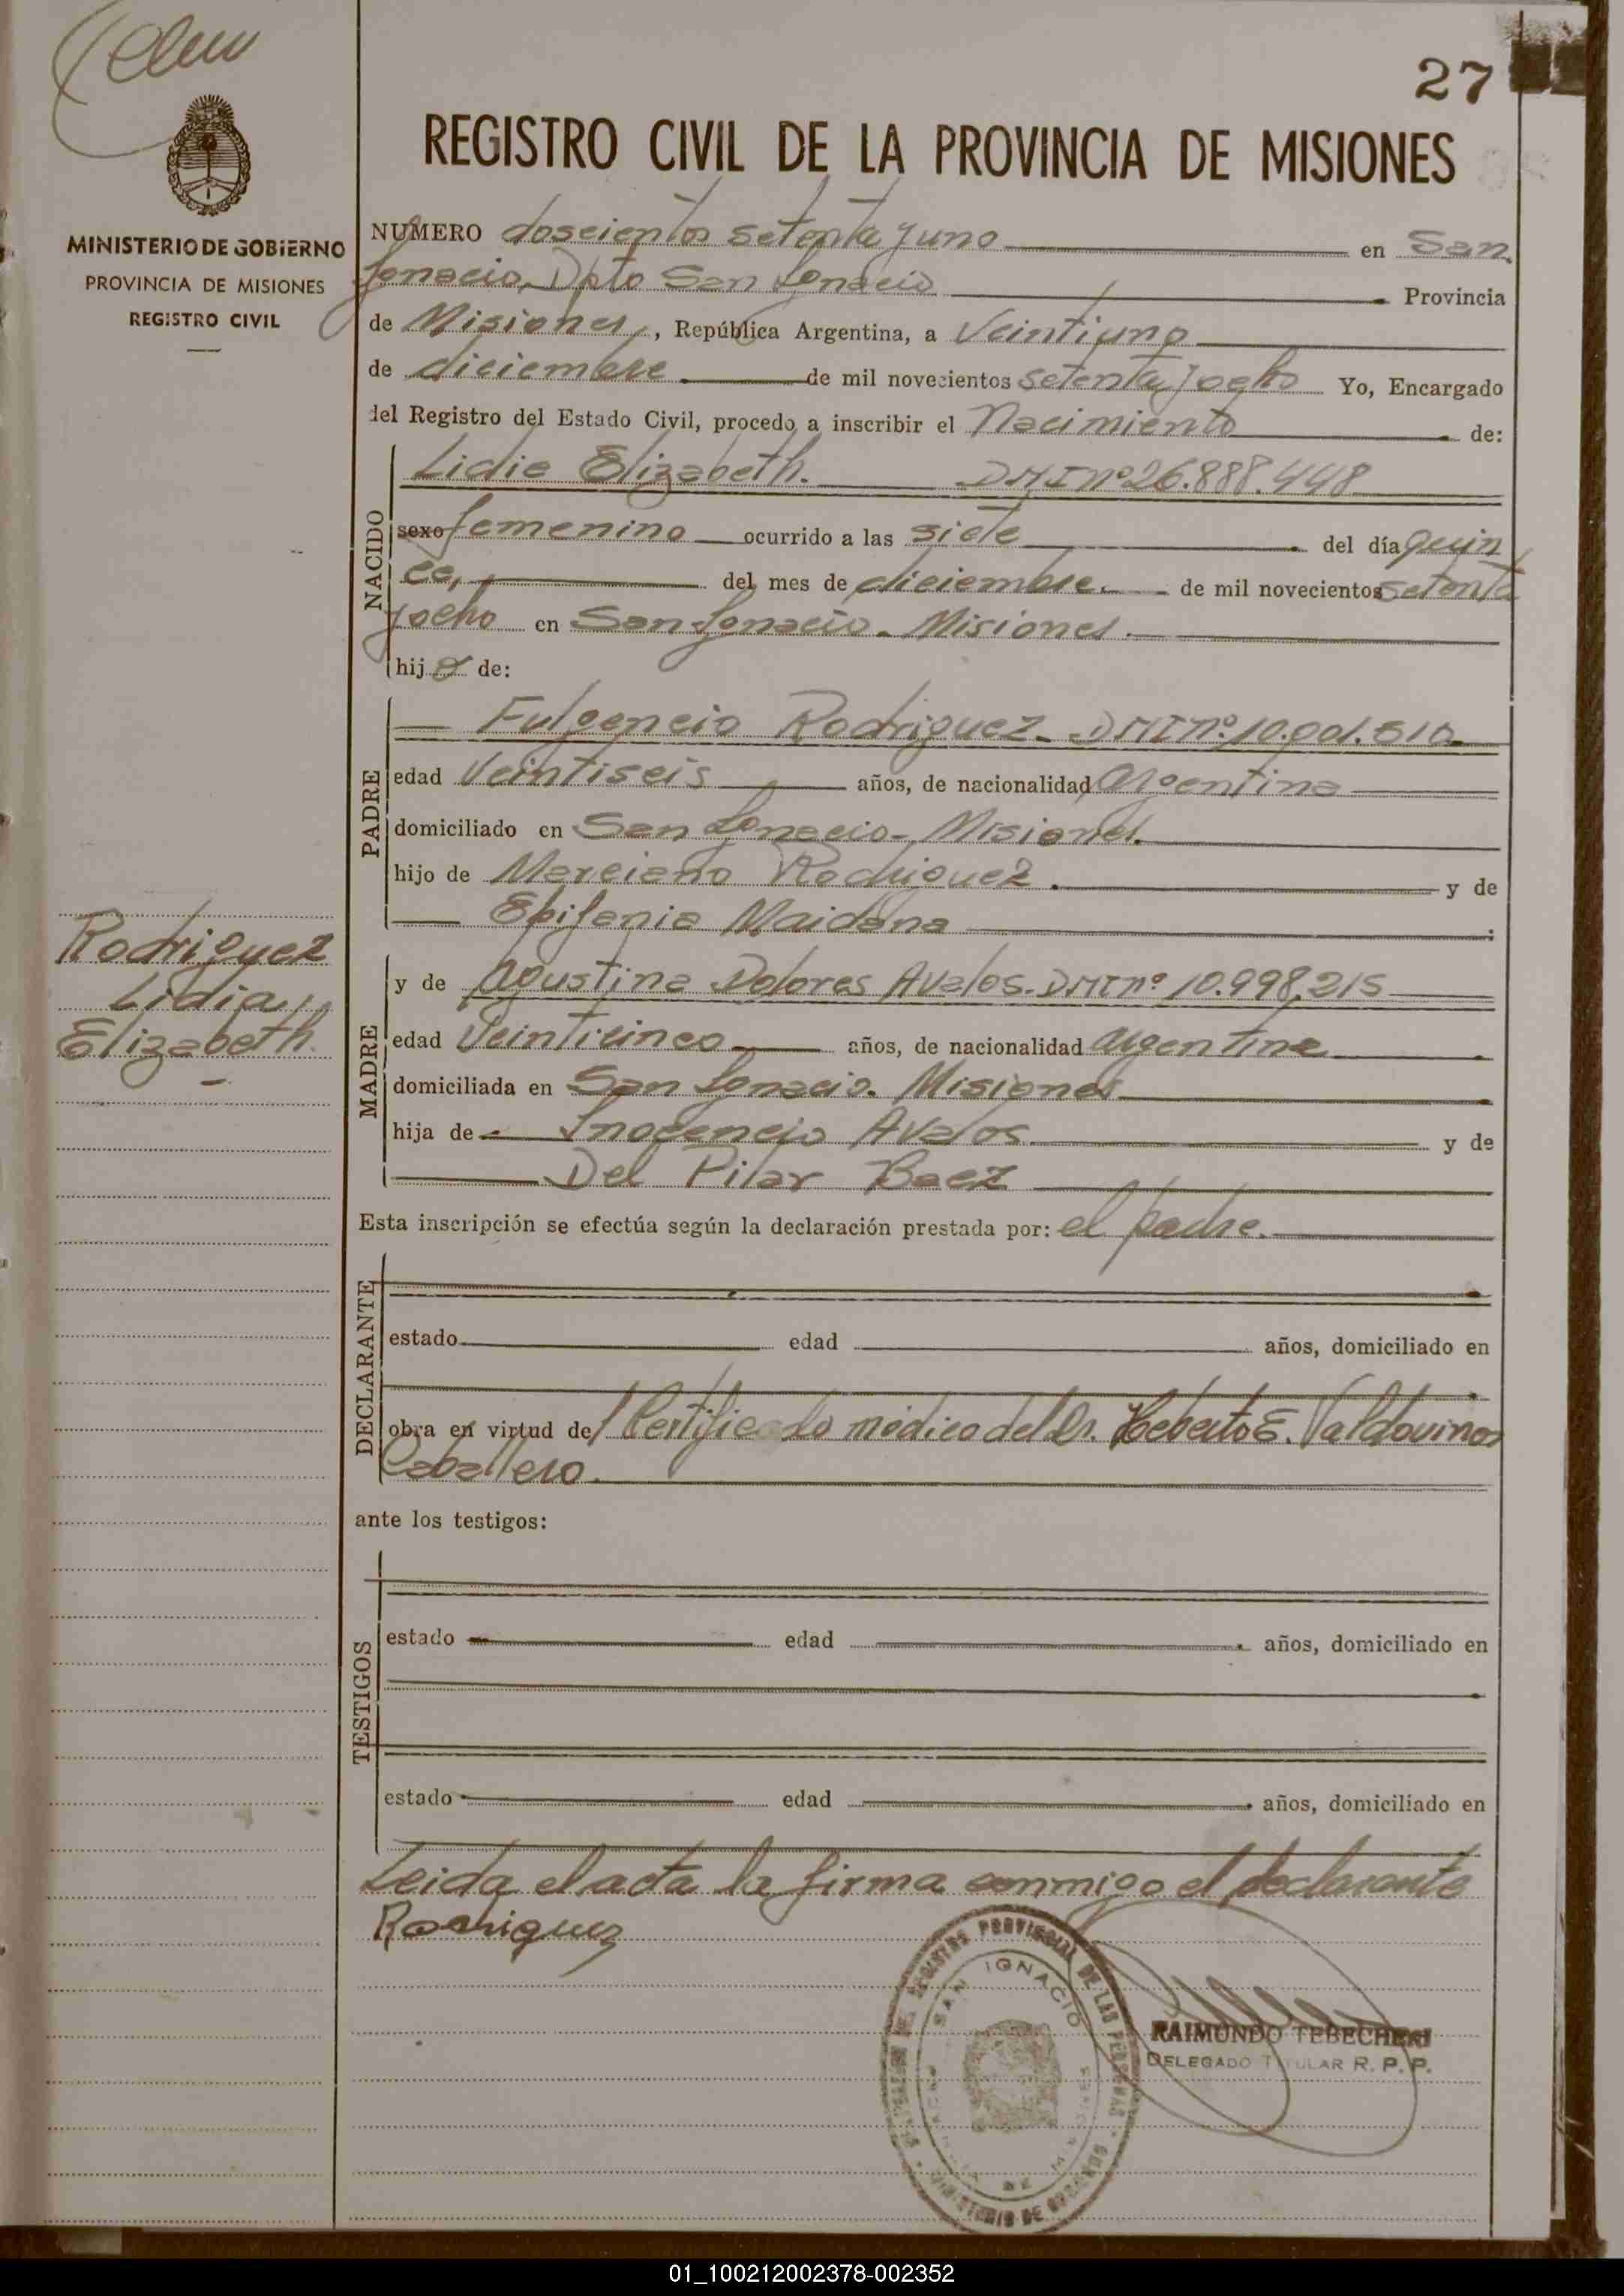 27
REGISTRO CIVIL DE LA PROVINCIA DE MISIONES
MINISTERIO DE GOBIERNO
PROVINCIA DE MISIONES
REGISTRO CIVIL
NUMERO doscientos setenta y uno en San
Ignacio, Dpto San Ignacio Provincia
de Misiones, República Argentina, a Veintiuno
de diciembre de mil novecientos setenta y ocho Yo, Encargado
del Registro del Estado Civil, procedo a inscribir el Nacimiento de:
NACIDO
Lidia Elizabeth. DNI nº 26.888.448
sexo femenino ocurrido a las siete del día quin
ce, del mes de diciembre. de mil novecientos setenta
y ocho en San Ignacio. Misiones.
hija de:
PADRE
Fulgencio Rodriguez. DNI nº 10.901.510
edad Veintiseis años, de nacionalidad Argentina
domiciliado en San Ignacio- Misiones.
hijo de Marciano Rodriguez. y de
Epifania Maidana
MADRE
y de Agustina Dolores Avalos. DNI nº 10.998,215
edad Veinticinco años, de nacionalidad argentina
domiciliada en San Ignacio. Misiones
hija de Inocencio Avalos y de
Del Pilar Baez
Rodriguez
Lidia
Elizabeth.
Esta inscripción se efectúa según la declaración prestada por: el padre.
DECLARANTE
estado edad años, domiciliado en
obra en virtud del Certificado médico del Dr. Heberto E. Valdovinos
Caballero.
ante los testigos:
TESTIGOS
estado edad años, domiciliado en
estado edad años, domiciliado en
Leida el acta la firma conmigo el declarante
Rodriguez
SAN IGNACIO
RAIMUNDO TEBECHERI
DELEGADO TITULAR R. P. P.
01_100212002378-002352